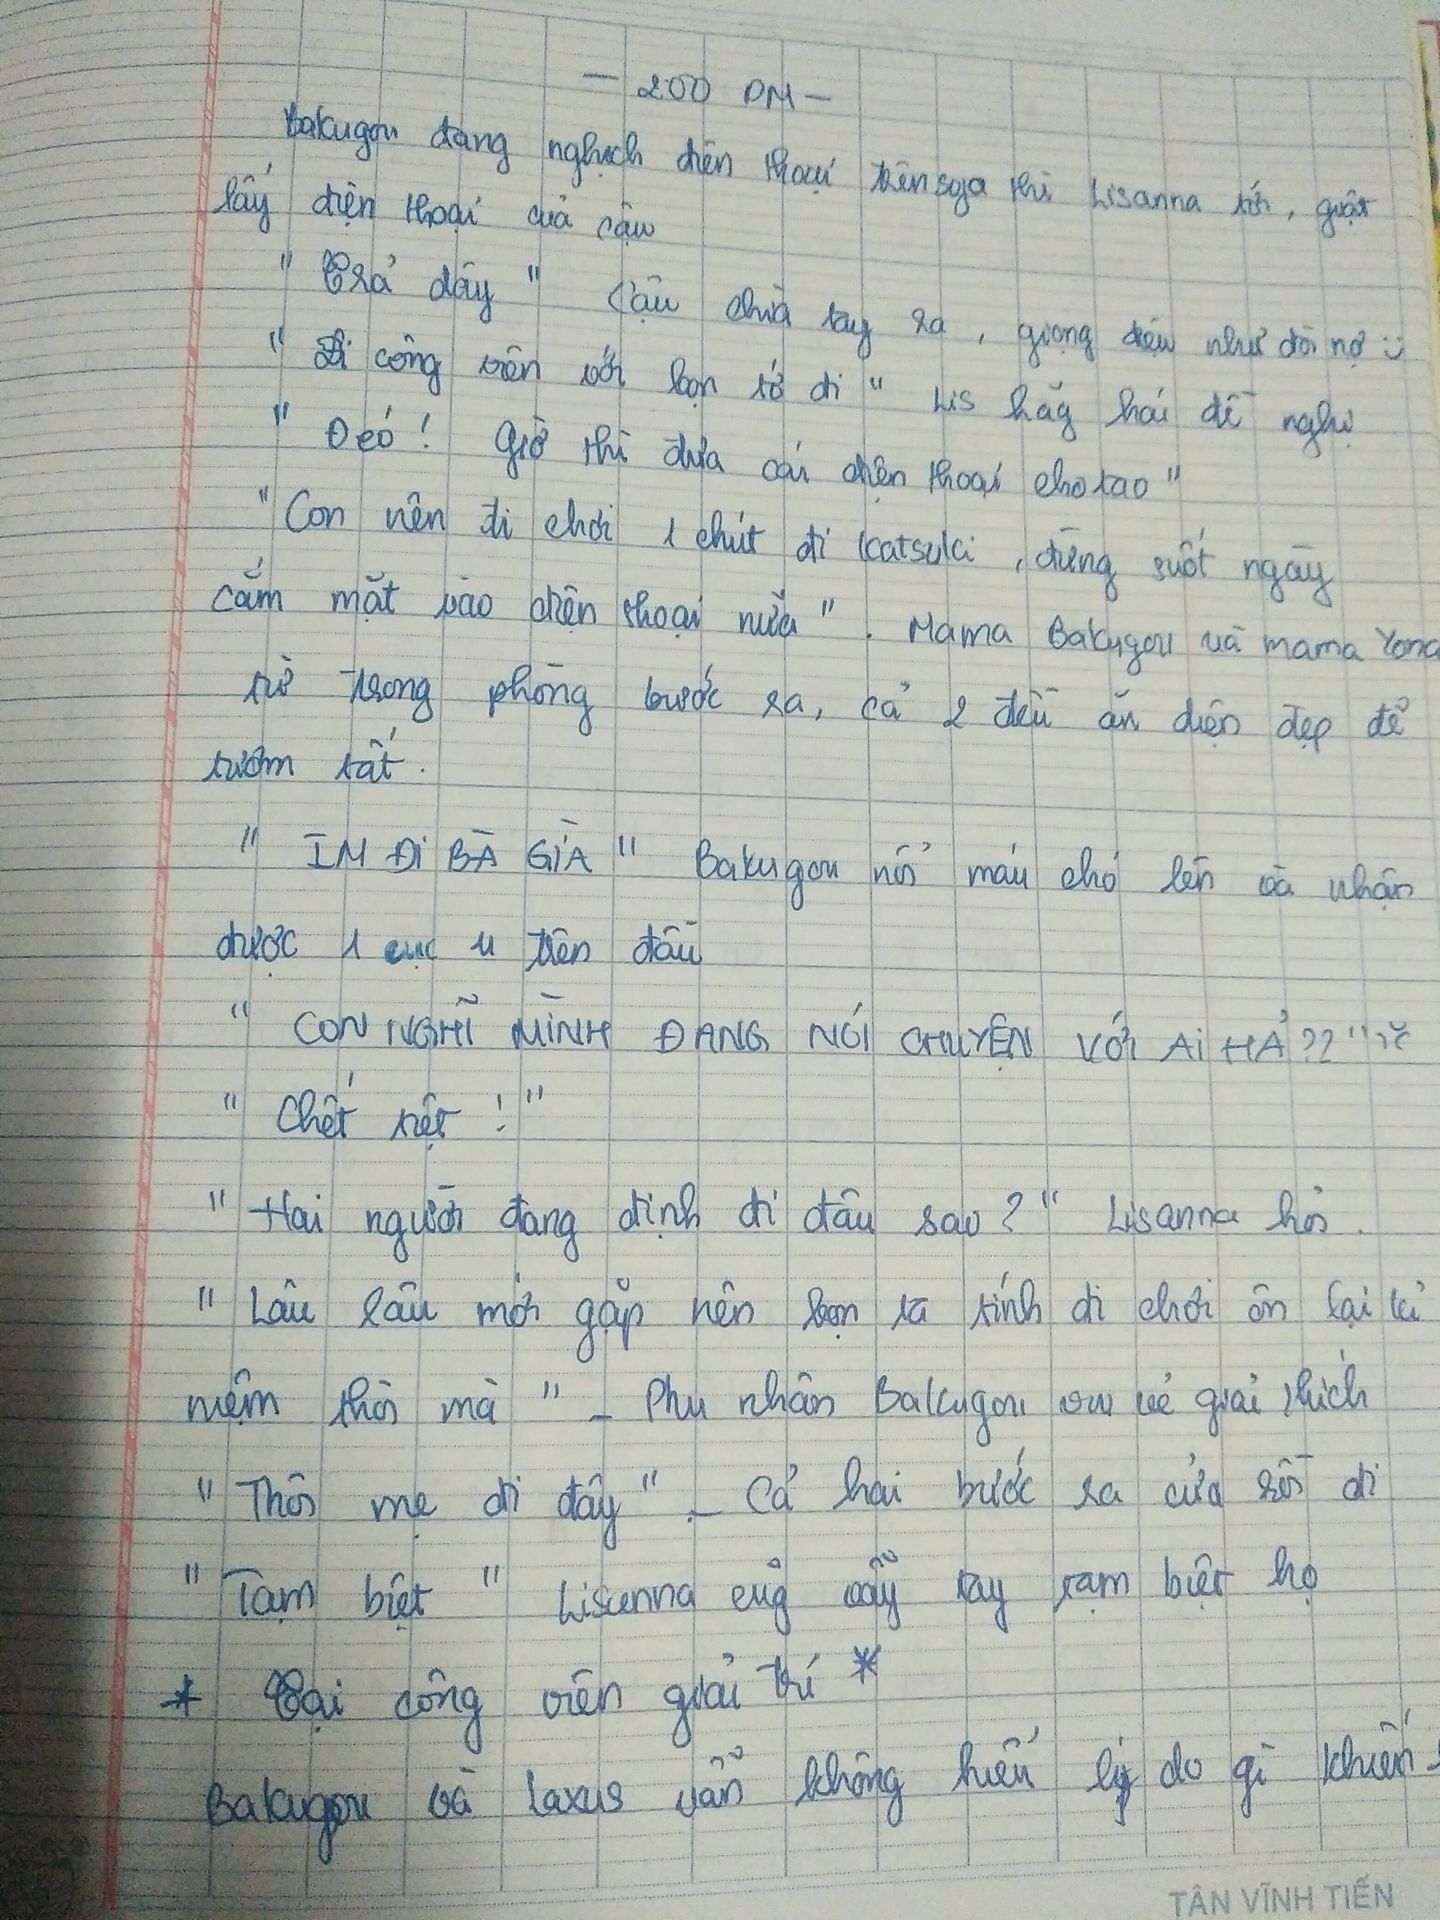 — 2:00 PM —
Bakugou đang nghịch điện thoại trên sofa thì Lisanna tới, giật
lấy điện thoại của cậu
" Trả đây " Cậu chìa tay ra, giọng điệu như đòi nợ :)
" Đi công viên với bọn tớ đi " Lis hăg hái đề nghị
" Đéo! Giờ thì đưa cái điện thoại cho tao "
" Con nên đi chơi 1 chút đi Katsuki, đừng suốt ngày
cắm mặt vào điện thoại nữa ". Mama Bakugou và mama Yona
từ trong phòng bước ra, cả 2 đều ăn diện đẹp đẽ
tươm tất.
" IM ĐI BÀ GIÀ " Bakugou nổi máu chó lên và nhận
được 1 cục u trên đầu
" CON NGHĨ MÌNH ĐANG NÓI CHUYỆN VỚI AI HẢ?? "
" Chết tiệt! "
" Hai người đang định đi đâu sao? " Lisanna hỏi.
" Lâu lâu mới gặp nên bọn ta tính đi chơi ôn lại kỉ
niệm thôi mà " - Phu nhân Bakugou vui vẻ giải thích
" Thôi mẹ đi đây " - Cả hai bước ra cửa rồi đi
" Tạm biệt " Lisanna cug vẫy tay tạm biệt họ
* Tại công viên giải trí *
Bakugou và Laxus vẫn không hiểu lý do gì khiến
TÂN VĨNH TIẾN